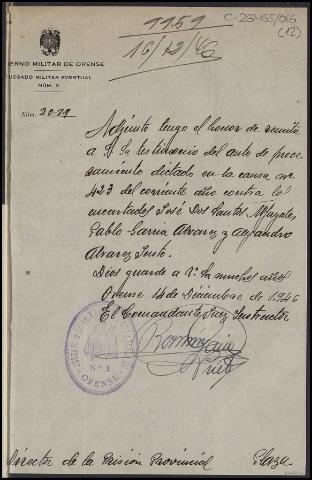 1959
C-26455/016
(12)
16/12/46
GOBIERNO MILITAR DE ORENSE
JUZGADO MILITAR EVENTUAL
NÚM. 3
Núm. 2029
Adjunto tengo el honor de remitir
a V. Sa testimonio del auto de proce-
samiento dictado en la causa nº
423 del corriente año contra los
encartados José Dos Santos
Pablo Garcia Alvarez y Alejandro
Alvarez Justo.
Dios guarde a V. Sa muchos años
Orense 14 de Diciembre de 1.946
El Comandante Juez Instructor
Nº 3
ORENSE
Director de la Prisión Provincial Plaza